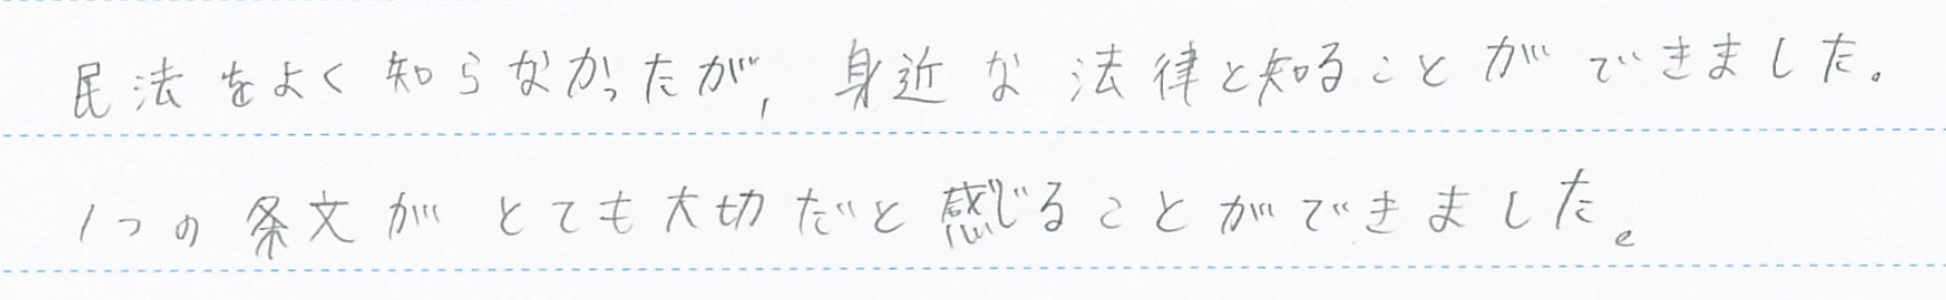 民法をよく知らなかったが,身近な法律と知ることができました。
1つの条文がとても大切だと感じることができました。